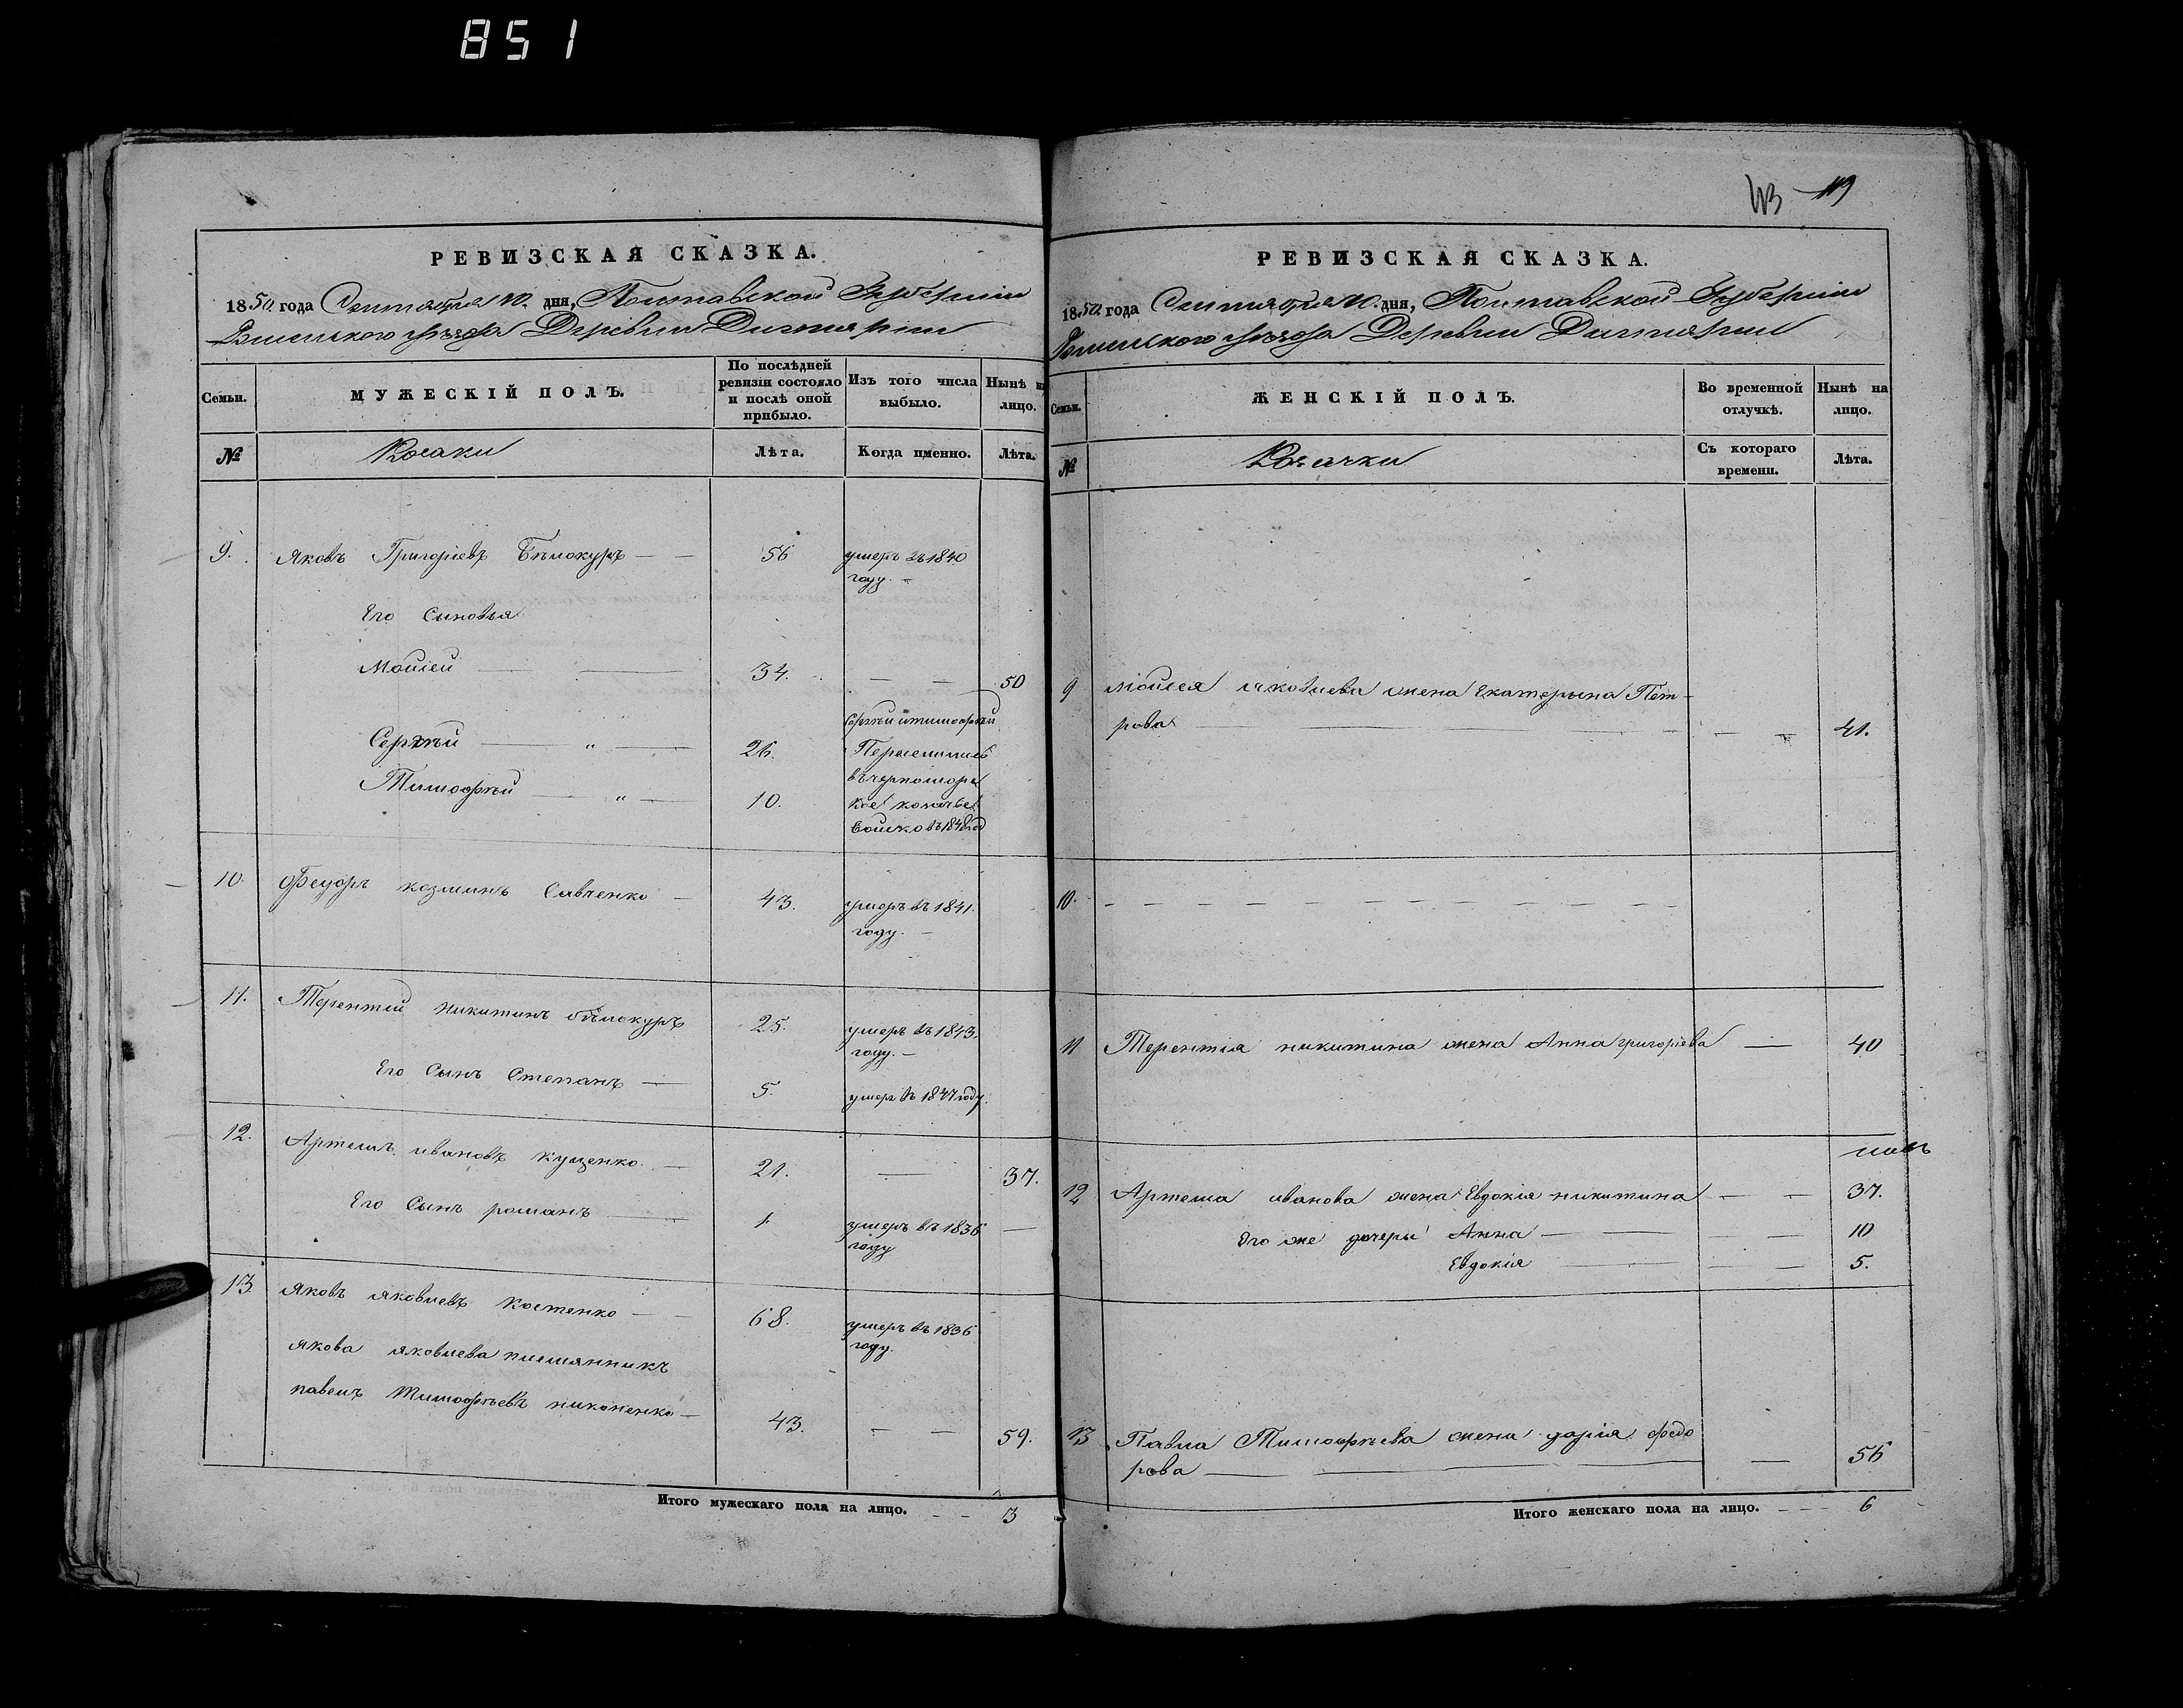 851
РЕВИЗСКАЯ СКАЗКА.
1850. года Сентября 10. дня, Полтавской Губернии
Роменского уѣзда Деревни
Семьи.
МУЖЕСКІЙ ПОЛЪ.
По послѣдней ревизіи состояло и послѣ оной прибыло.
Изъ того числа выбыло.
Нынѣ на лицо.
№
Козаки
Лѣта.
Когда именно.
Лѣта.
9. Яковъ Григоріевъ Бѣлокуръ — — 56 умеръ въ 1840
году. —
Его Сыновья
Моисей — — 34. — — 50
Сергѣй и тимофѣй
Сергѣй — " — 26. Переселились
въ черноморс
Тимофѣй — " — 10. кое козачье
войско въ 1848 год
10. Федоръ козминъ Савченко — 43. умеръ въ 1841.
году. —
11. Терентій никитинъ бѣлокуръ 25. умеръ въ 1843.
году. —
Его Сынъ Степанъ — 5. умеръ въ 1847 году.
12. Артемъ ивановъ куценко — 21. — 37.
Его Сынъ романъ — 1 умеръ въ 1836 —
году
13. Яковъ яковлевъ костенко — 68. умеръ въ 1836
году.
якова яковлева племянникъ
павелъ Тимофѣевъ никоненко — 43. — — 59.
Итого мужескаго пола на лицо. — — 3
119
РЕВИЗСКАЯ СКАЗКА.
1850. года Сентября 10. дня, Полтавской Губерніи
Роменского уѣзда Деревни
Семьи.
ЖЕНСКІЙ ПОЛЪ.
Во временной отлучкѣ.
Нынѣ на лицо.
№
Козачки
Съ котораго времени.
Лѣта.
9 Моисея яковлева жена Екатерына Пет-
рова — — — 41.
10. — — — — — — — — — — — — — —
11 Терентія никитина жена Анна григоріева — 40
12 Артема иванова жена Евдокія никитина — — 37.
Его же дочеры Анна — — — 10
Евдокія — — — 5.
13 Павла Тимофѣева жена дарія федо
рова — — — 56
Итого женскаго пола на лицо. — — — 6